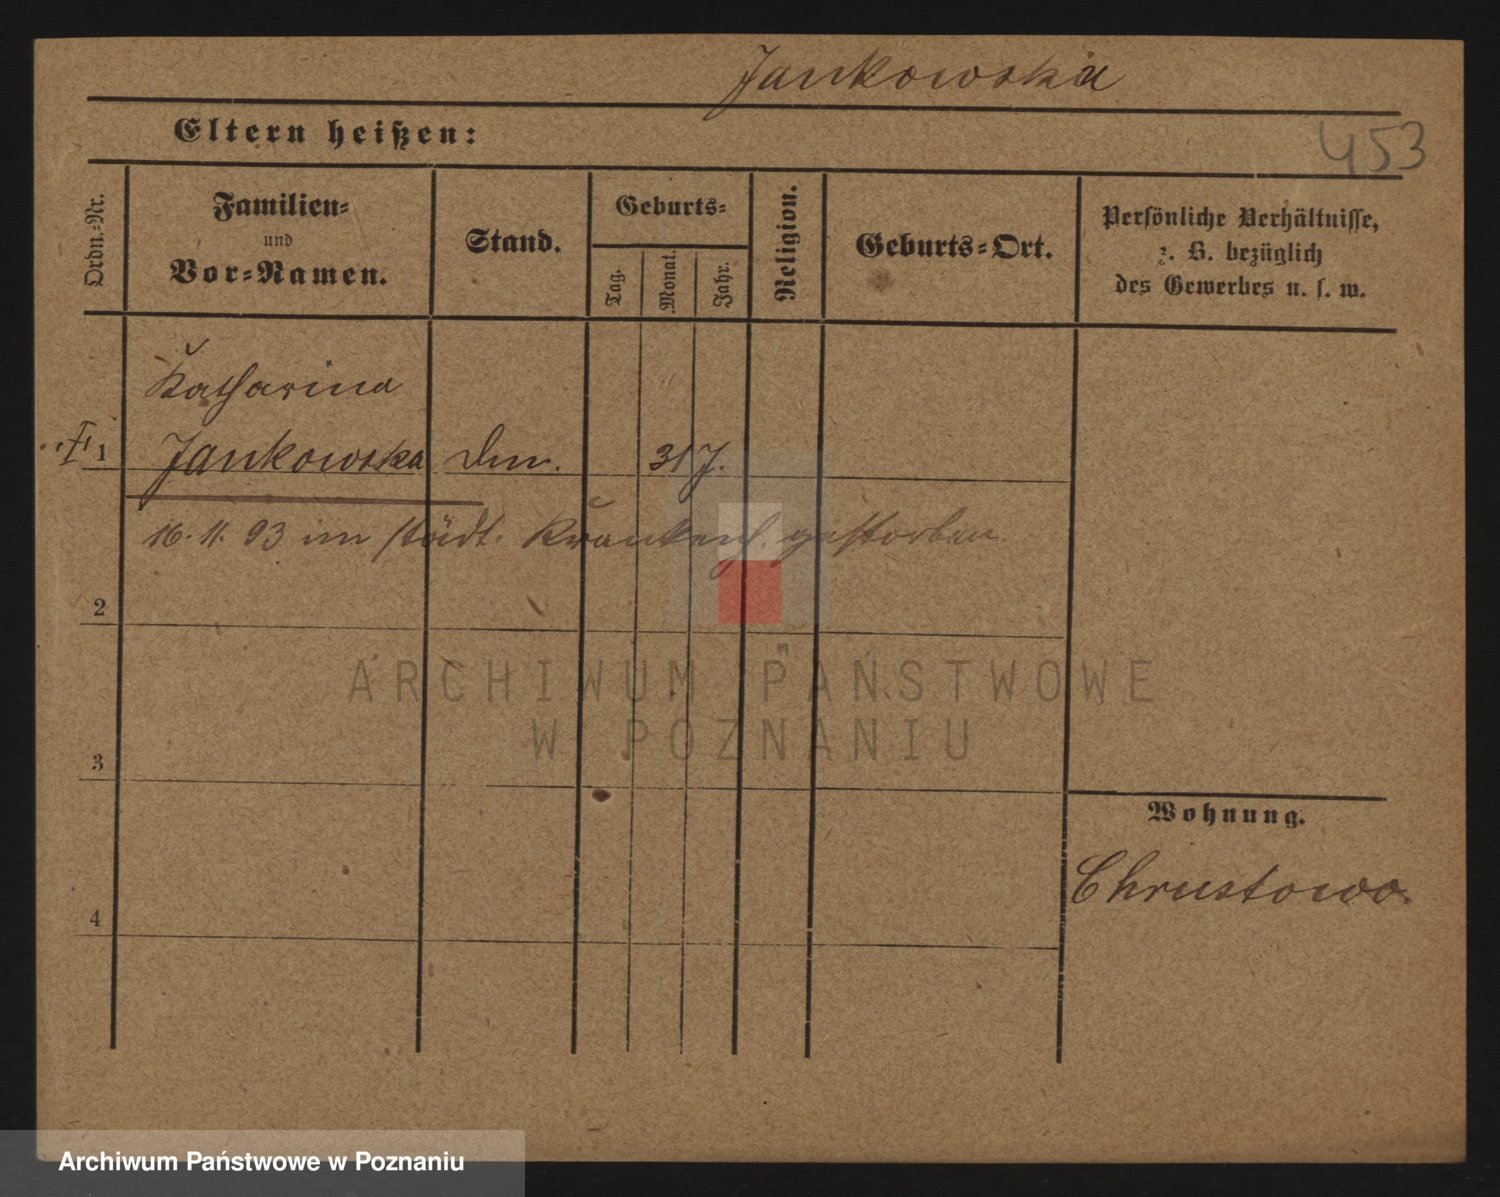 Jankowska
453
Eltern heißen:
Ordn.-Nr.
Familien-
und
Vor-Namen.
Stand.
Geburts-
Tag.
Monat.
Jahr.
Religion.
Geburts-Ort.
Persönliche Verhältnisse,
z. B. bezüglich
des Gewerbes u. s. w.
Katharina
1 Jankowska 31 J.
16. 11. 93 im städt. Krankenh. gestorben
2
3
4
Wohnung.
Chrustowo.
ARCHIWUM PAŃSTWOWE
W POZNANIU
Archiwum Państwowe w Poznaniu